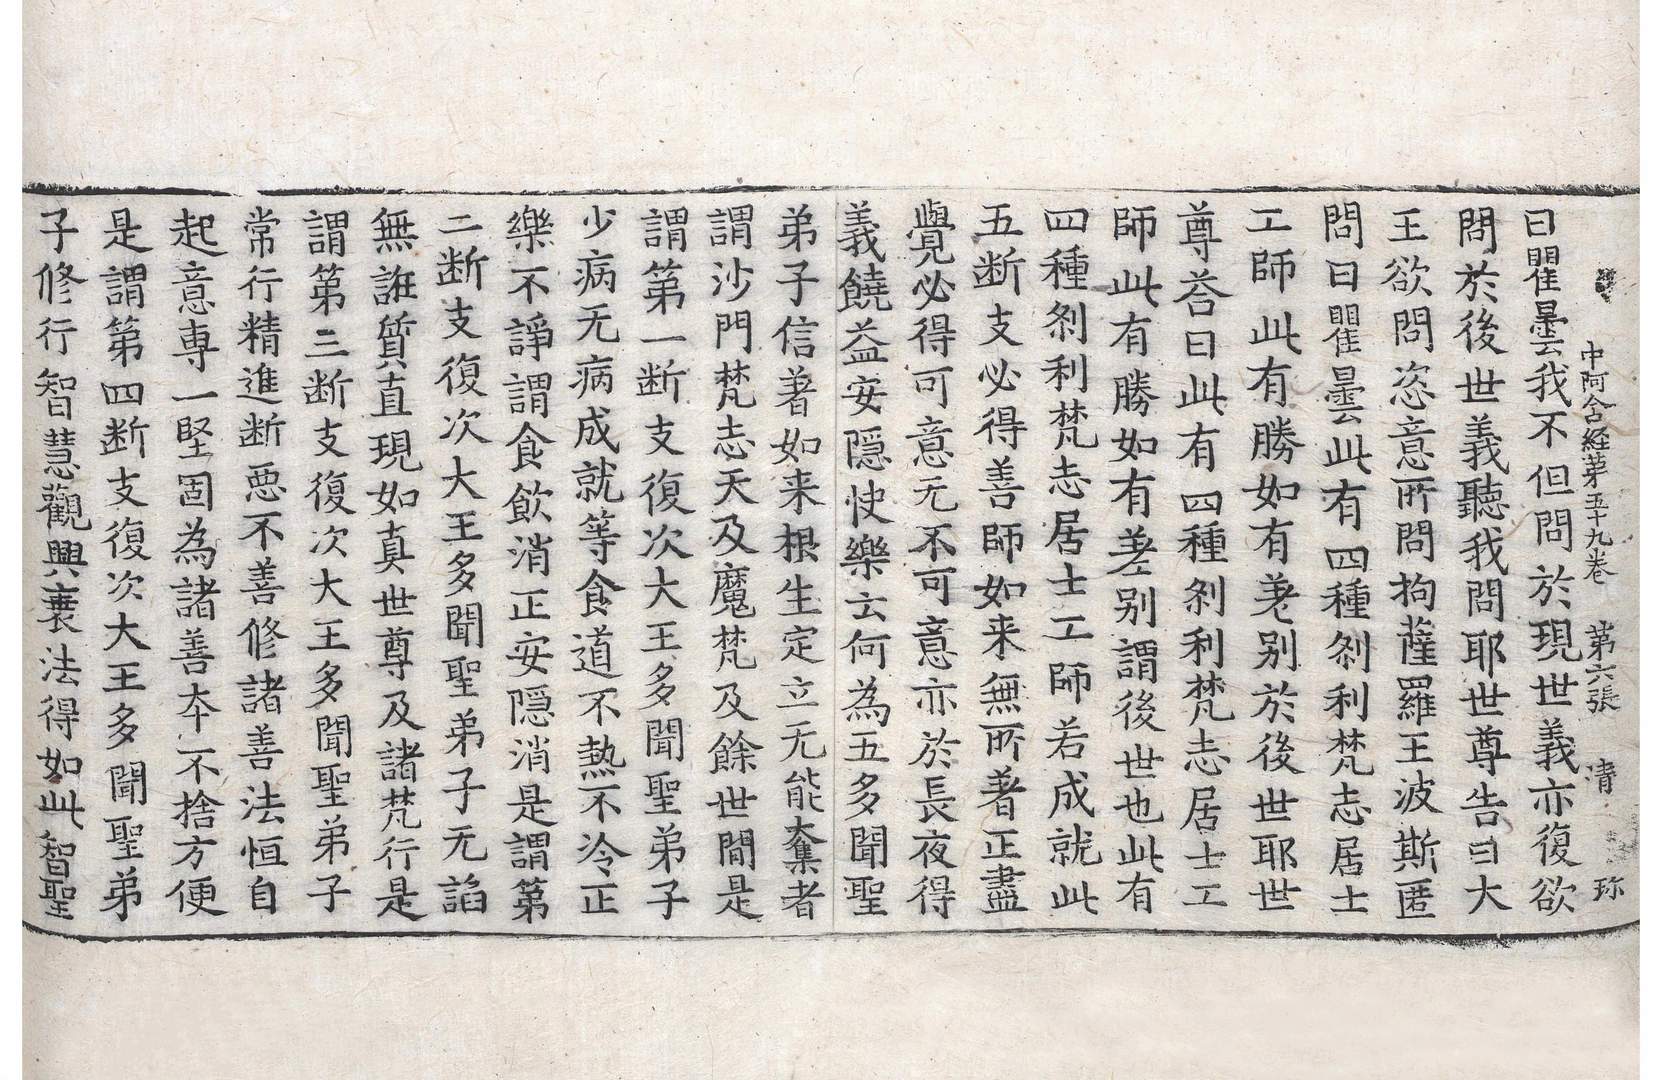 中阿含経苐五十九卷 第六張 清 珎
曰瞿曇我不但問於現世義亦復欲
問於後世義聽我問耶世尊告曰大
王欲問恣意所問拘薩羅王波斯匿
問曰瞿曇此有四種剎利梵志居士
工師此有勝如有差別於後世耶世
尊荅曰此有四種剎利梵志居士工
師此有勝如有差別謂後世也此有
四種剎利梵志居士工師若成就此
五断支必得善師如来無所著正盡
覺必得可意无不可意亦於長夜得
義饒益安隠快樂云何為五多聞聖
弟子信著如来根生定立无能奪者
謂沙門梵志天及魔梵及餘世間是
謂第一断支復次大王多聞聖弟子
少病无病成就等食道不熱不冷正
樂不諍謂食飲消正安隠消是謂第
二断支復次大王多聞聖弟子无諂
無誑質直現如真世尊及諸梵行是
謂第三断支復次大王多聞聖弟子
常行精進断惡不善修諸善法恒自
起意専一堅固為諸善夲不捨方便
是謂第四断支復次大王多聞聖弟
子修行智慧觀興衰法得如此智聖